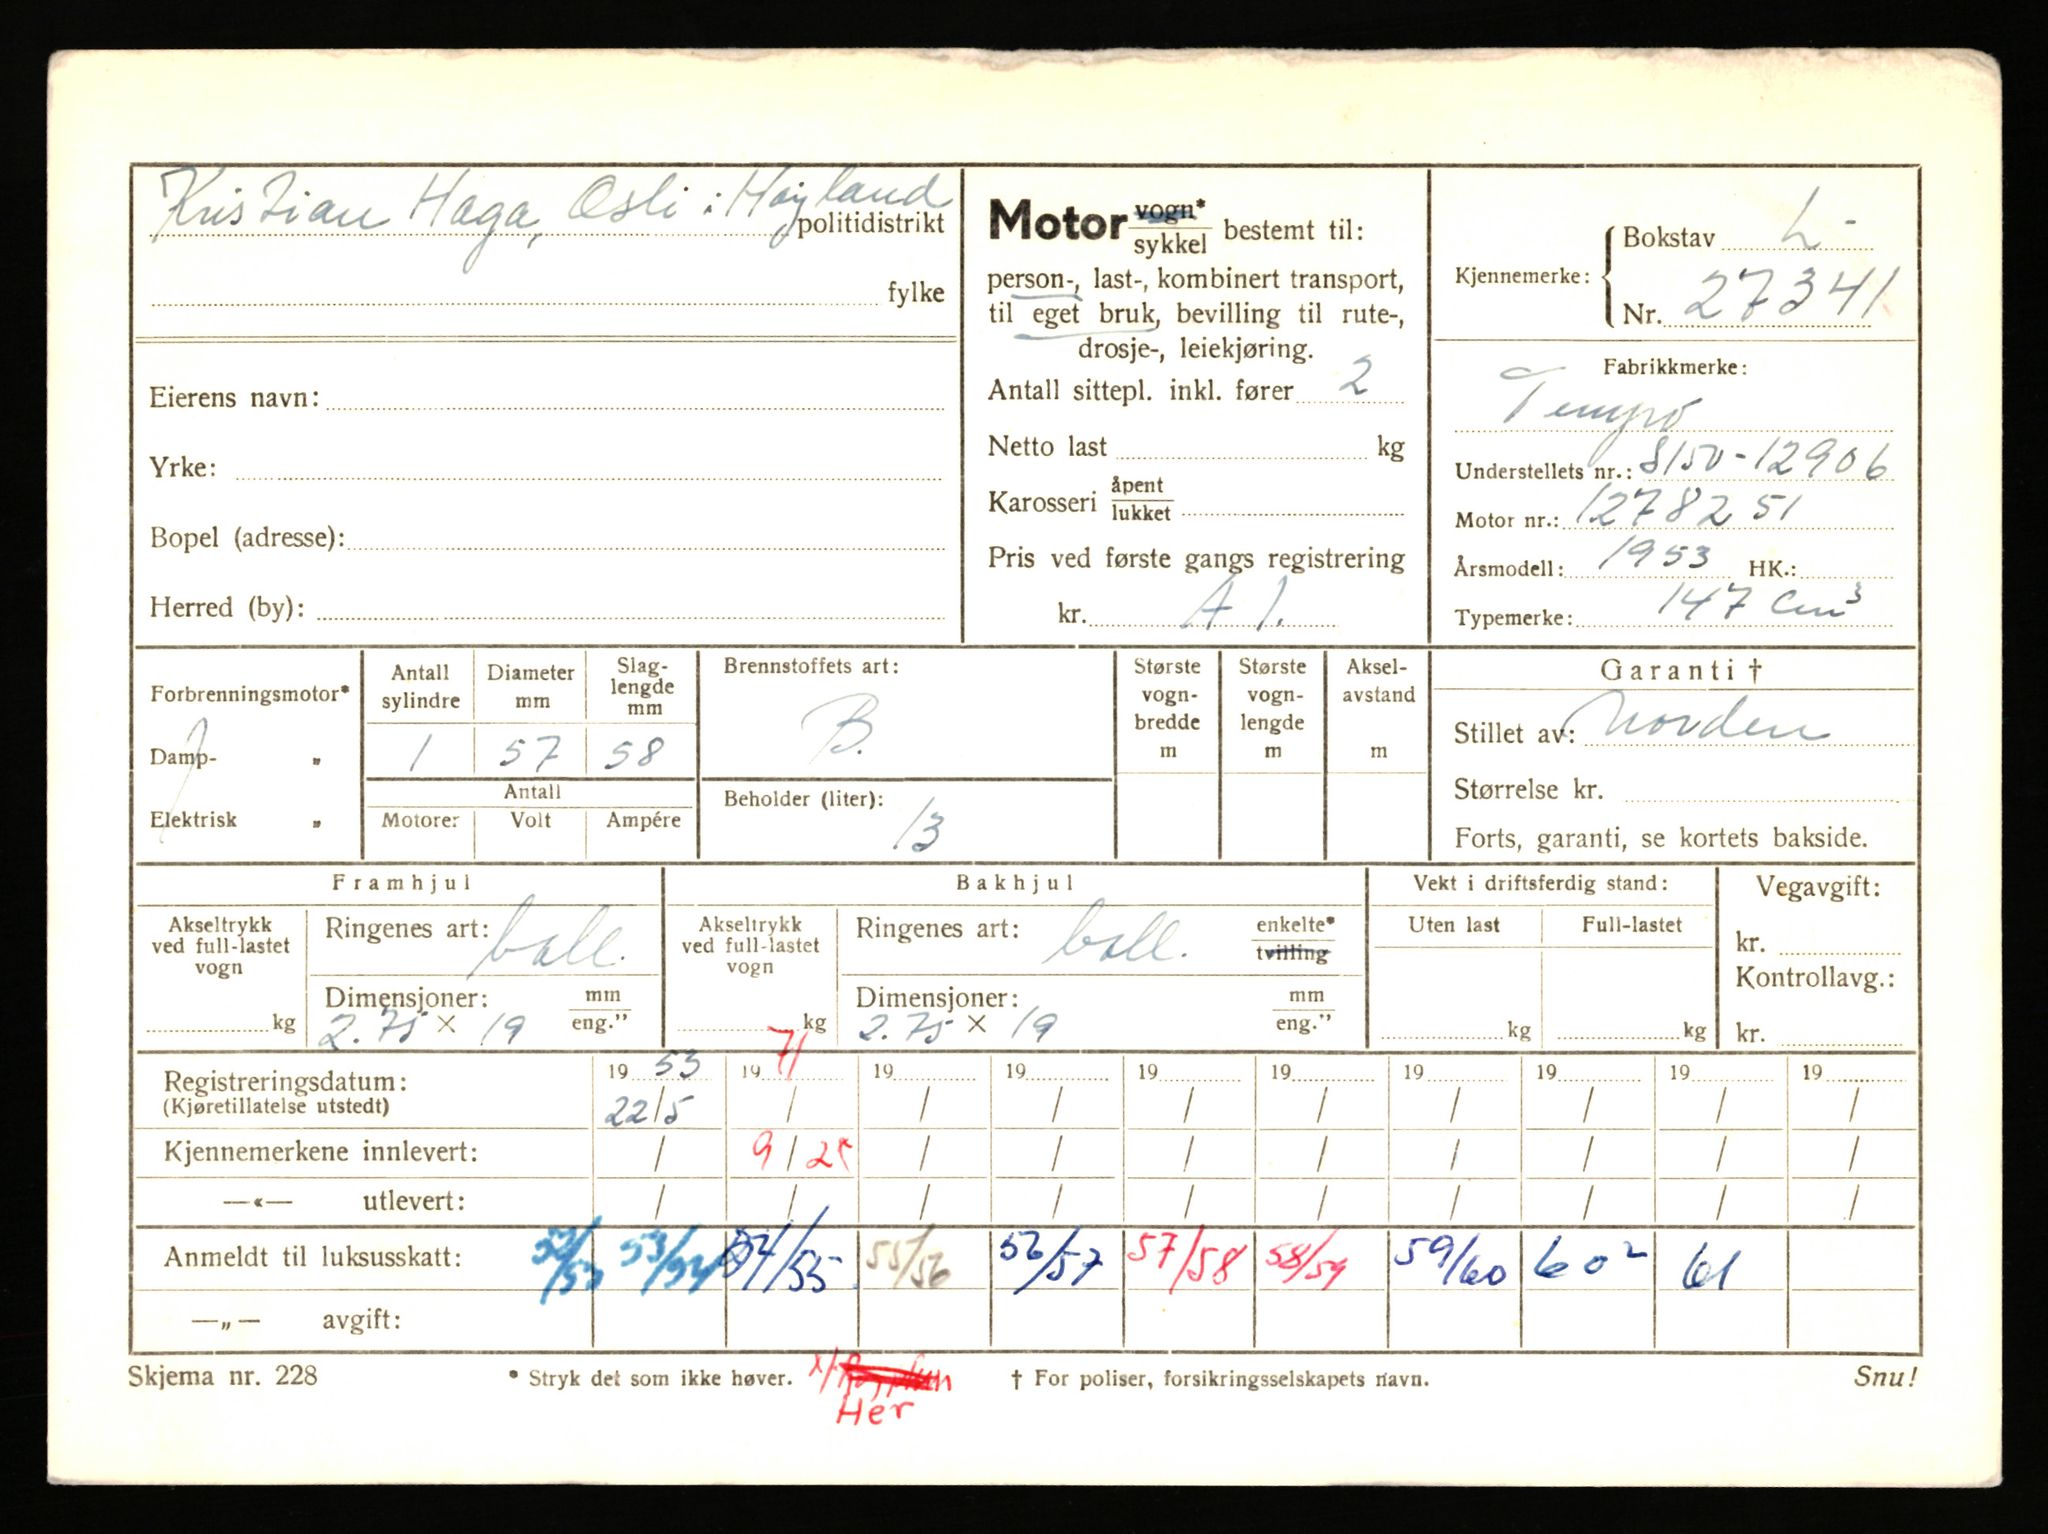 Kristian Haga, Osli i Høyland politidistrikt
fylke
Eierens navn:
Yrke:
Bopel (adresse):
Herred (by):
Motor vogn* sykkel bestemt til:
person-, last-, kombinert transport,
til eget bruk, bevilling til rute-,
drosje-, leiekjøring.
Antall sittepl. inkl. fører 2
Netto last kg
Karosseri åpent lukket
Pris ved første gangs registrering
kr. A 1.
Kjennemerke: { Bokstav L-
Nr. 27341
Fabrikkmerke:
Tempo
Understellets nr.: 8150-12906
Motor nr.: 1278251
Årsmodell: 1953 HK.:
Typemerke: 147 cm³
Forbrenningsmotor*
Damp- „
Elektrisk „
Antall sylindre 1
Diameter mm 57
Slag-lengde mm 58
Antall
Motorer Volt Ampére
Brennstoffets art: B.
Beholder (liter): 13
Største vogn-bredde m
Største vogn-lengde m
Aksel-avstand m
Garanti †
Stillet av: Norden
Størrelse kr.
Forts, garanti, se kortets bakside.
Framhjul
Akseltrykk ved full-lastet vogn kg
Ringenes art: ball.
Dimensjoner: mm eng."
2.75 × 19
Bakhjul
Akseltrykk ved full-lastet vogn kg
Ringenes art: ball. enkelte* tvilling
Dimensjoner: mm eng."
2.75 × 19
Vekt i driftsferdig stand:
Uten last Full-lastet
kg kg
Vegavgift:
kr.
Kontrollavg.:
kr.
Registreringsdatum: 19 53 19 71 19 19 19 19 19 19 19 19
(Kjøretillatelse utstedt) 22/5 / / / / / / / / /
Kjennemerkene innlevert: / 9/2 / / / / / / / /
—«— utlevert: / / / / / / / / / /
Anmeldt til luksusskatt: 52/53 53/54 54/55 55/56 56/57 57/58 58/59 59/60 60² 61
—„— avgift:
Skjema nr. 228
* Stryk det som ikke høver.
x/ Her
† For poliser, forsikringsselskapets navn.
Snu!